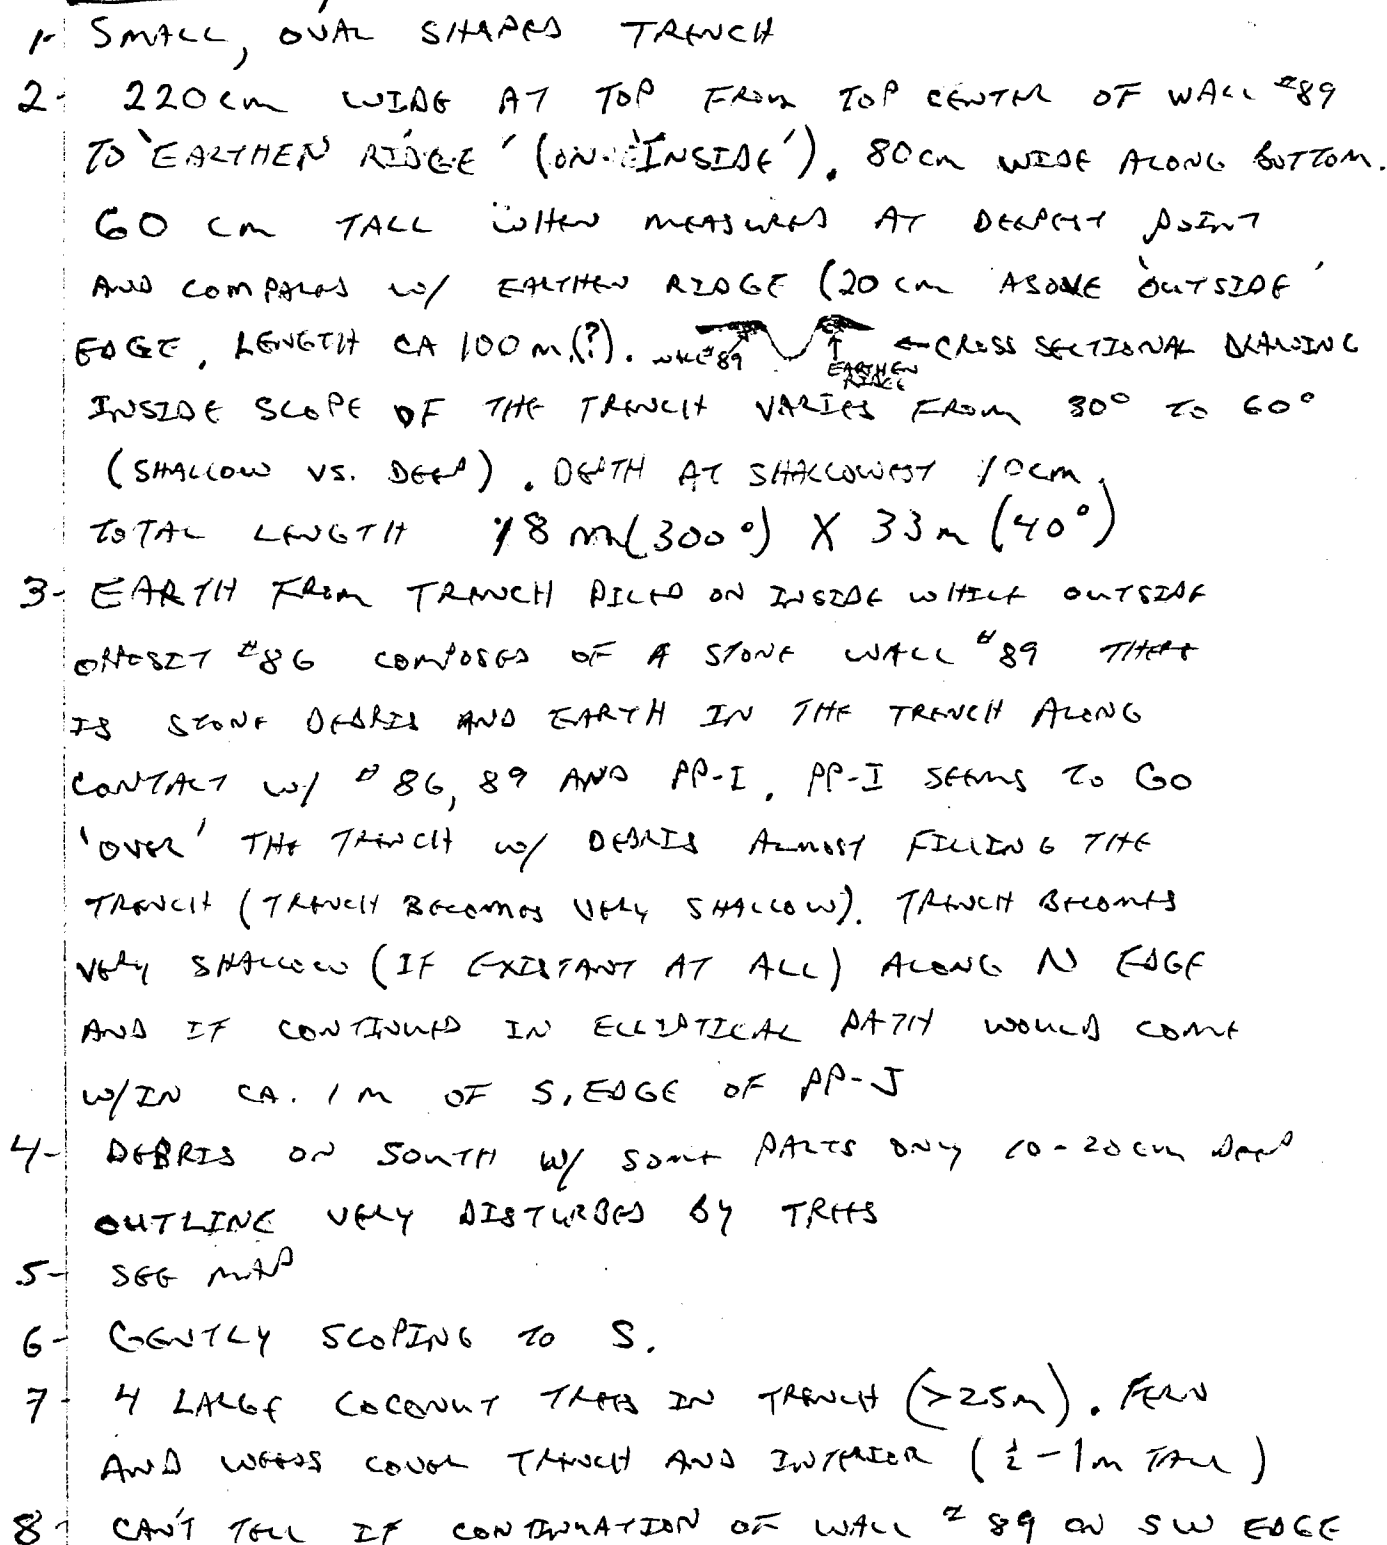 1- SMALL, OVAL SHAPED TRENCH
2- 220 cm WIDE AT TOP FROM TOP CENTER OF WALL #89
TO 'EARTHEN RIDGE' (ON 'INSIDE'). 80 cm WIDE ALONG BOTTOM.
60 cm TALL WHEN MEASURED AT DEEPEST POINT
AND COMPARED w/ EARTHEN RIDGE (20 cm ABOVE 'OUTSIDE'
EDGE. LENGTH CA 100 m (?). WALL #89 EARTHEN RIDGE ← CROSS SECTIONAL DRAWING
INSIDE SLOPE OF THE TRENCH VARIES FROM 30° TO 60°
(SHALLOW VS. DEEP). DEPTH AT SHALLOWEST 10cm.
TOTAL LENGTH 18 m (300°) X 33 m (40°)
3- EARTH FROM TRENCH PILED ON INSIDE WHILE OUTSIDE
OPPOSIT #86 COMPOSED OF A STONE WALL #89 THERE
IS STONE DEBRIS AND EARTH IN THE TRENCH ALONG
CONTACT w/ #86, 89 AND PP-I. PP-I SEEMS TO GO
'OVER' THE TRENCH w/ DEBRIS ALMOST FILLING THE
TRENCH (TRENCH BECOMES VERY SHALLOW). TRENCH BECOMES
VERY SHALLOW (IF EXISTANT AT ALL) ALONG N EDGE
AND IF CONTINUED IN ELLIPTICAL PATH WOULD COME
W/IN CA. 1 m OF S. EDGE OF PP-J
4- DEBRIS ON SOUTH W/ SOME PARTS ONLY 10-20 cm DEEP
OUTLINE VERY DISTURBED BY TREES
5- SEE MAP
6- GENTLY SLOPING TO S.
7- 4 LARGE COCONUT TREES IN TRENCH (>25m). FERN
AND WEEDS COVER TRENCH AND INTERIOR (½-1m TALL)
8- CAN'T TELL IF CONTINUATION OF WALL #89 ON SW EDGE